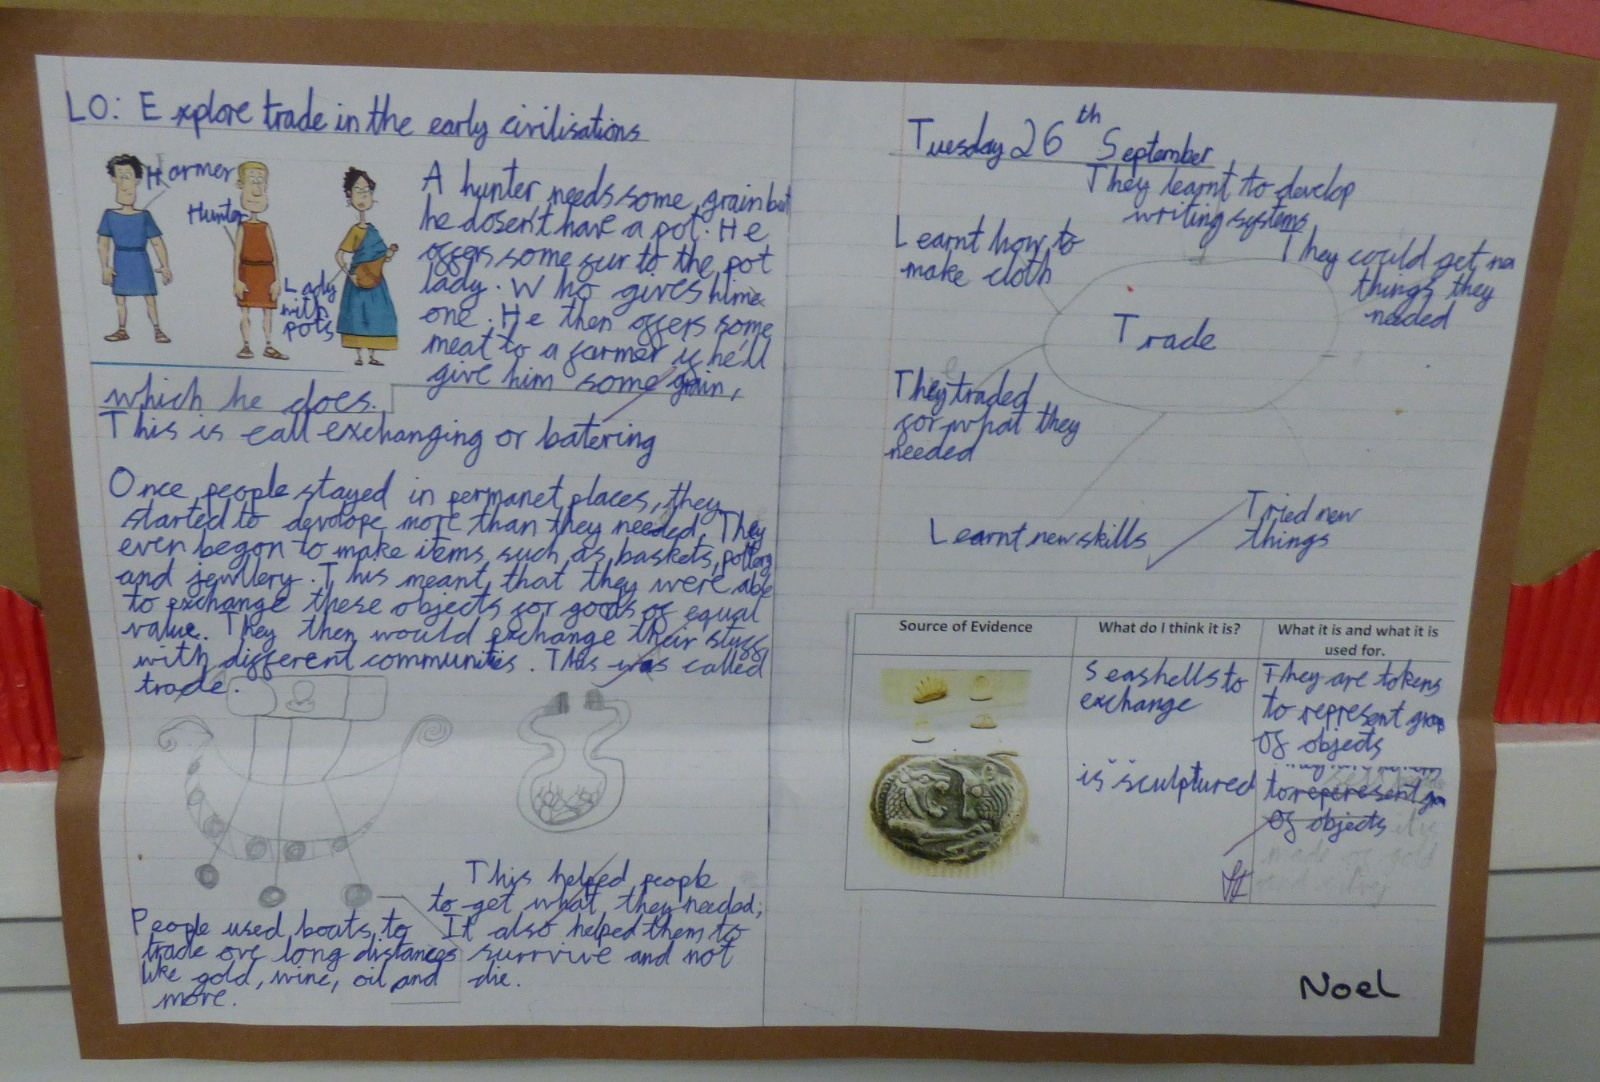 LO: Explore trade in the early civilisations
Harmer
Hunter
Lady
with
pots
A hunter needs some grain but
he dosen't have a pot. He
offers some fur to the pot
lady. Who gives him
one. He then offers some
meat to a farmer if he'll
give him some grain,
which he does.
This is call exchanging or batering
Once people stayed in permanet places, they
started to devolope more than they needed. They
even began to make items, such as baskets, pottery
and jewllery. This meant that they were able
to exchange these objects for goods of equal
value. They then would exchange their stuff
with different communities. This was called
trade.
People used boats to
trade ove long distances
like gold, wine, oil and
more.
This helped people
to get what they needed;
It also helped them to
surrvive and not
die.
Tuesday 26th September
They learnt to develop
writing systems
Learnt how to
make cloth
They could get
things they
needed
Trade
They traded
for what they
needed
Learnt new skills
Tried new
things
Source of Evidence
What do I think it is?
What it is and what it is
used for.
Seashells to
exchange
They are tokens
to represent
of objects
is sculptured
to reperesent
of objects
made of gold
Noel